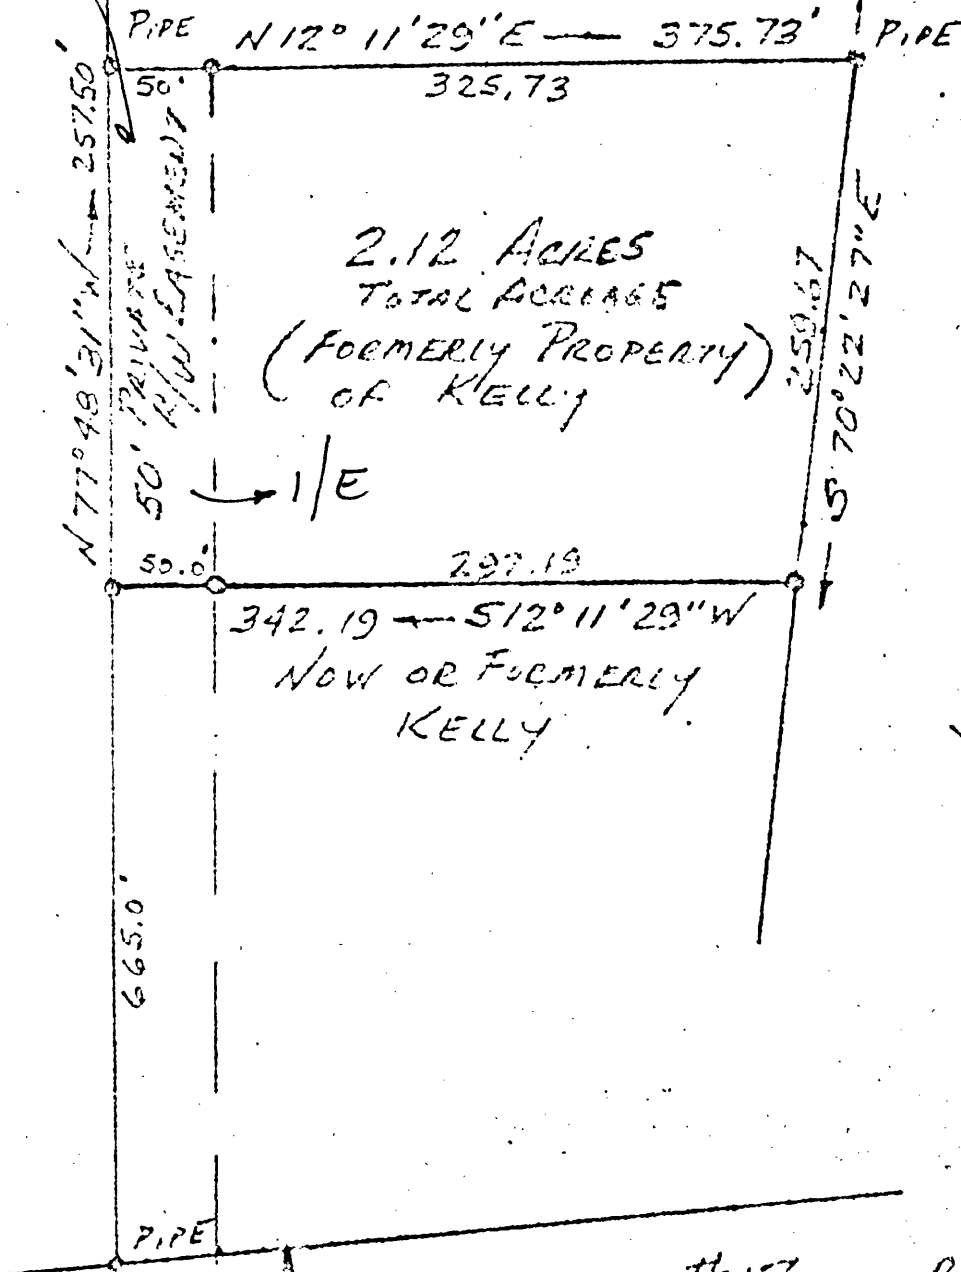 PIPE
N 12° 11' 29" E — 375.73'
PIPE
50'
325.73
N 77° 48' 31" W — 257.50'
50' PRIVATE
R/W EASEMENT
2.12 ACRES
TOTAL ACREAGE
(FORMERLY PROPERTY)
OF KELLY
S 70° 22' 27" E
1/E
50.0'
342.19 — S 12° 11' 29" W
NOW OR FORMERLY
KELLY
665.0'
PIPE